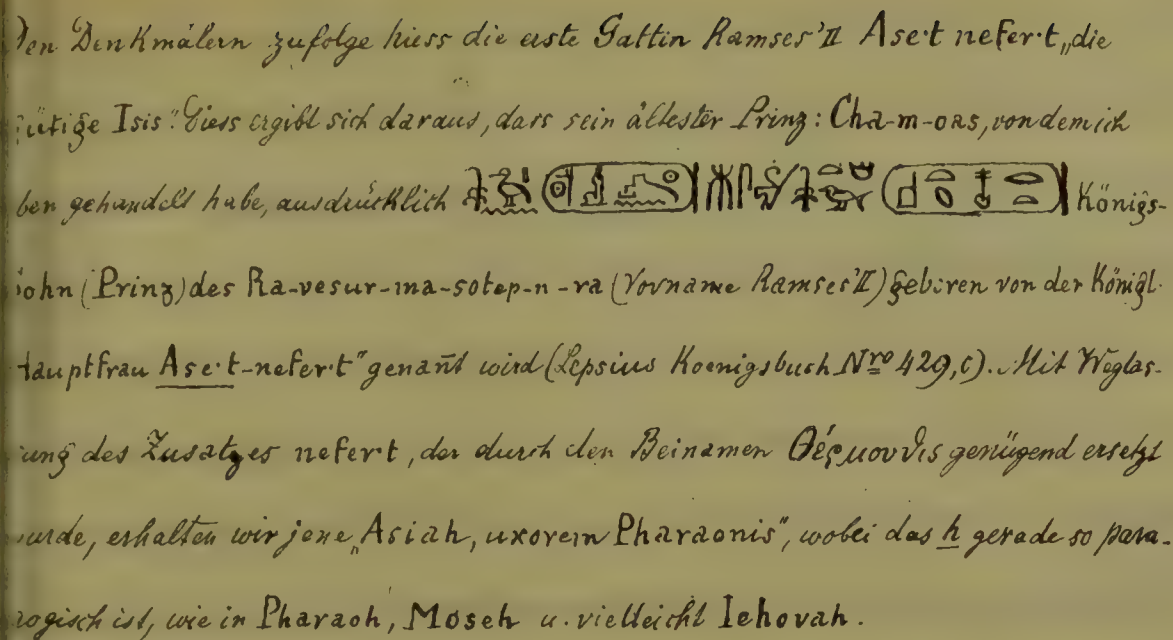 Den Denkmälern zufolge hiess die erste Gattin Ramses' II Ase·t nefer·t „die
gütige Isis“. Diess ergibt sich daraus, dass sein ältester Prinz: Cha-m-oas, von dem ich
oben gehandelt habe, ausdrücklich Königs-
sohn (Prinz) des Ra-vesur-ma-sotep-n-ra (Vorname Ramses' II) geboren von der Königl.
Hauptfrau Ase·t-nefer·t“ genan̄t wird (Lepsius Koenigsbuch Nro 429,c). Mit Weglas-
sung des Zusatzes nefer·t, der durch den Beinamen Θέρμουθις genügend ersetzt
wurde, erhalten wir jene „Asiah, uxorem Pharaonis“, wobei das h gerade so para-
gogisch ist, wie in Pharaoh, Moseh u. vielleicht Iehovah.